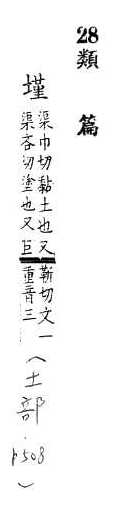 28 類篇
墐
渠巾切黏土也又
渠吝切塗也又巨
靳切文一
重音三
(土部.p508)